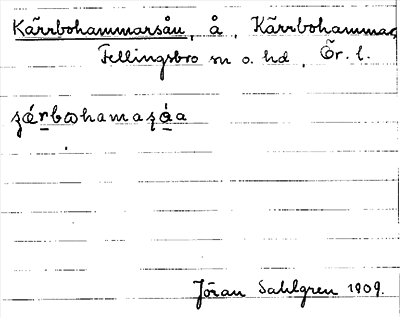 Kärrbohammarsån, å, Kärrbohammar,
Fellingsbro sn o. hd, Ör. l.
Jöran Sahlgren 1909.